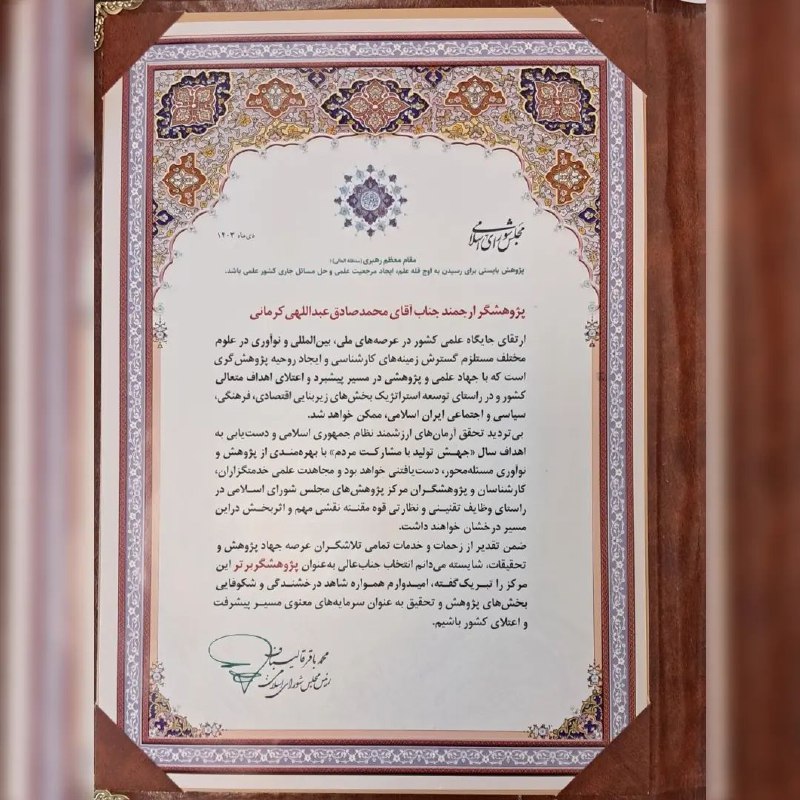 مجلس شورای اسلامی
دی‌ماه ۱۴۰۳
مقام معظم رهبری (مدظله العالی):
پژوهش بایستی برای رسیدن به اوج قله علم، ایجاد مرجعیت علمی و حل مسائل جاری کشور علمی باشد.
پژوهشگر ارجمند جناب آقای محمدصادق عبداللهی کرمانی
ارتقای جایگاه علمی کشور در عرصه‌های ملی، بین‌المللی و نوآوری در علوم
مختلف مستلزم گسترش زمینه‌های کارشناسی و ایجاد روحیه پژوهش‌گری
است که با جهاد علمی و پژوهشی در مسیر پیشبرد و اعتلای اهداف متعالی
کشور و در راستای توسعه استراتژیک بخش‌های زیربنایی اقتصادی، فرهنگی،
سیاسی و اجتماعی ایران اسلامی، ممکن خواهد شد.
بی‌تردید تحقق آرمان‌های ارزشمند نظام جمهوری اسلامی و دست‌یابی به
اهداف سال «جهش تولید با مشارکت مردم» با بهره‌مندی از پژوهش و
نوآوری مسئله‌محور، دست‌یافتنی خواهد بود و مجاهدت علمی خدمتگزاران،
کارشناسان و پژوهشگران مرکز پژوهش‌های مجلس شورای اسلامی در
راستای وظایف تقنینی و نظارتی قوه مقننه نقشی مهم و اثربخش در این
مسیر درخشان خواهند داشت.
ضمن تقدیر از زحمات و خدمات تمامی تلاشگران عرصه جهاد پژوهش و
تحقیقات، شایسته می‌دانم انتخاب جناب‌عالی به‌عنوان پژوهشگر برتر این
مرکز را تبریک گفته، امیدوارم همواره شاهد درخشندگی و شکوفایی
بخش‌های پژوهش و تحقیق به عنوان سرمایه‌های معنوی مسیر پیشرفت
و اعتلای کشور باشیم.
محمد باقر قالیباف
رئیس مجلس شورای اسلامی